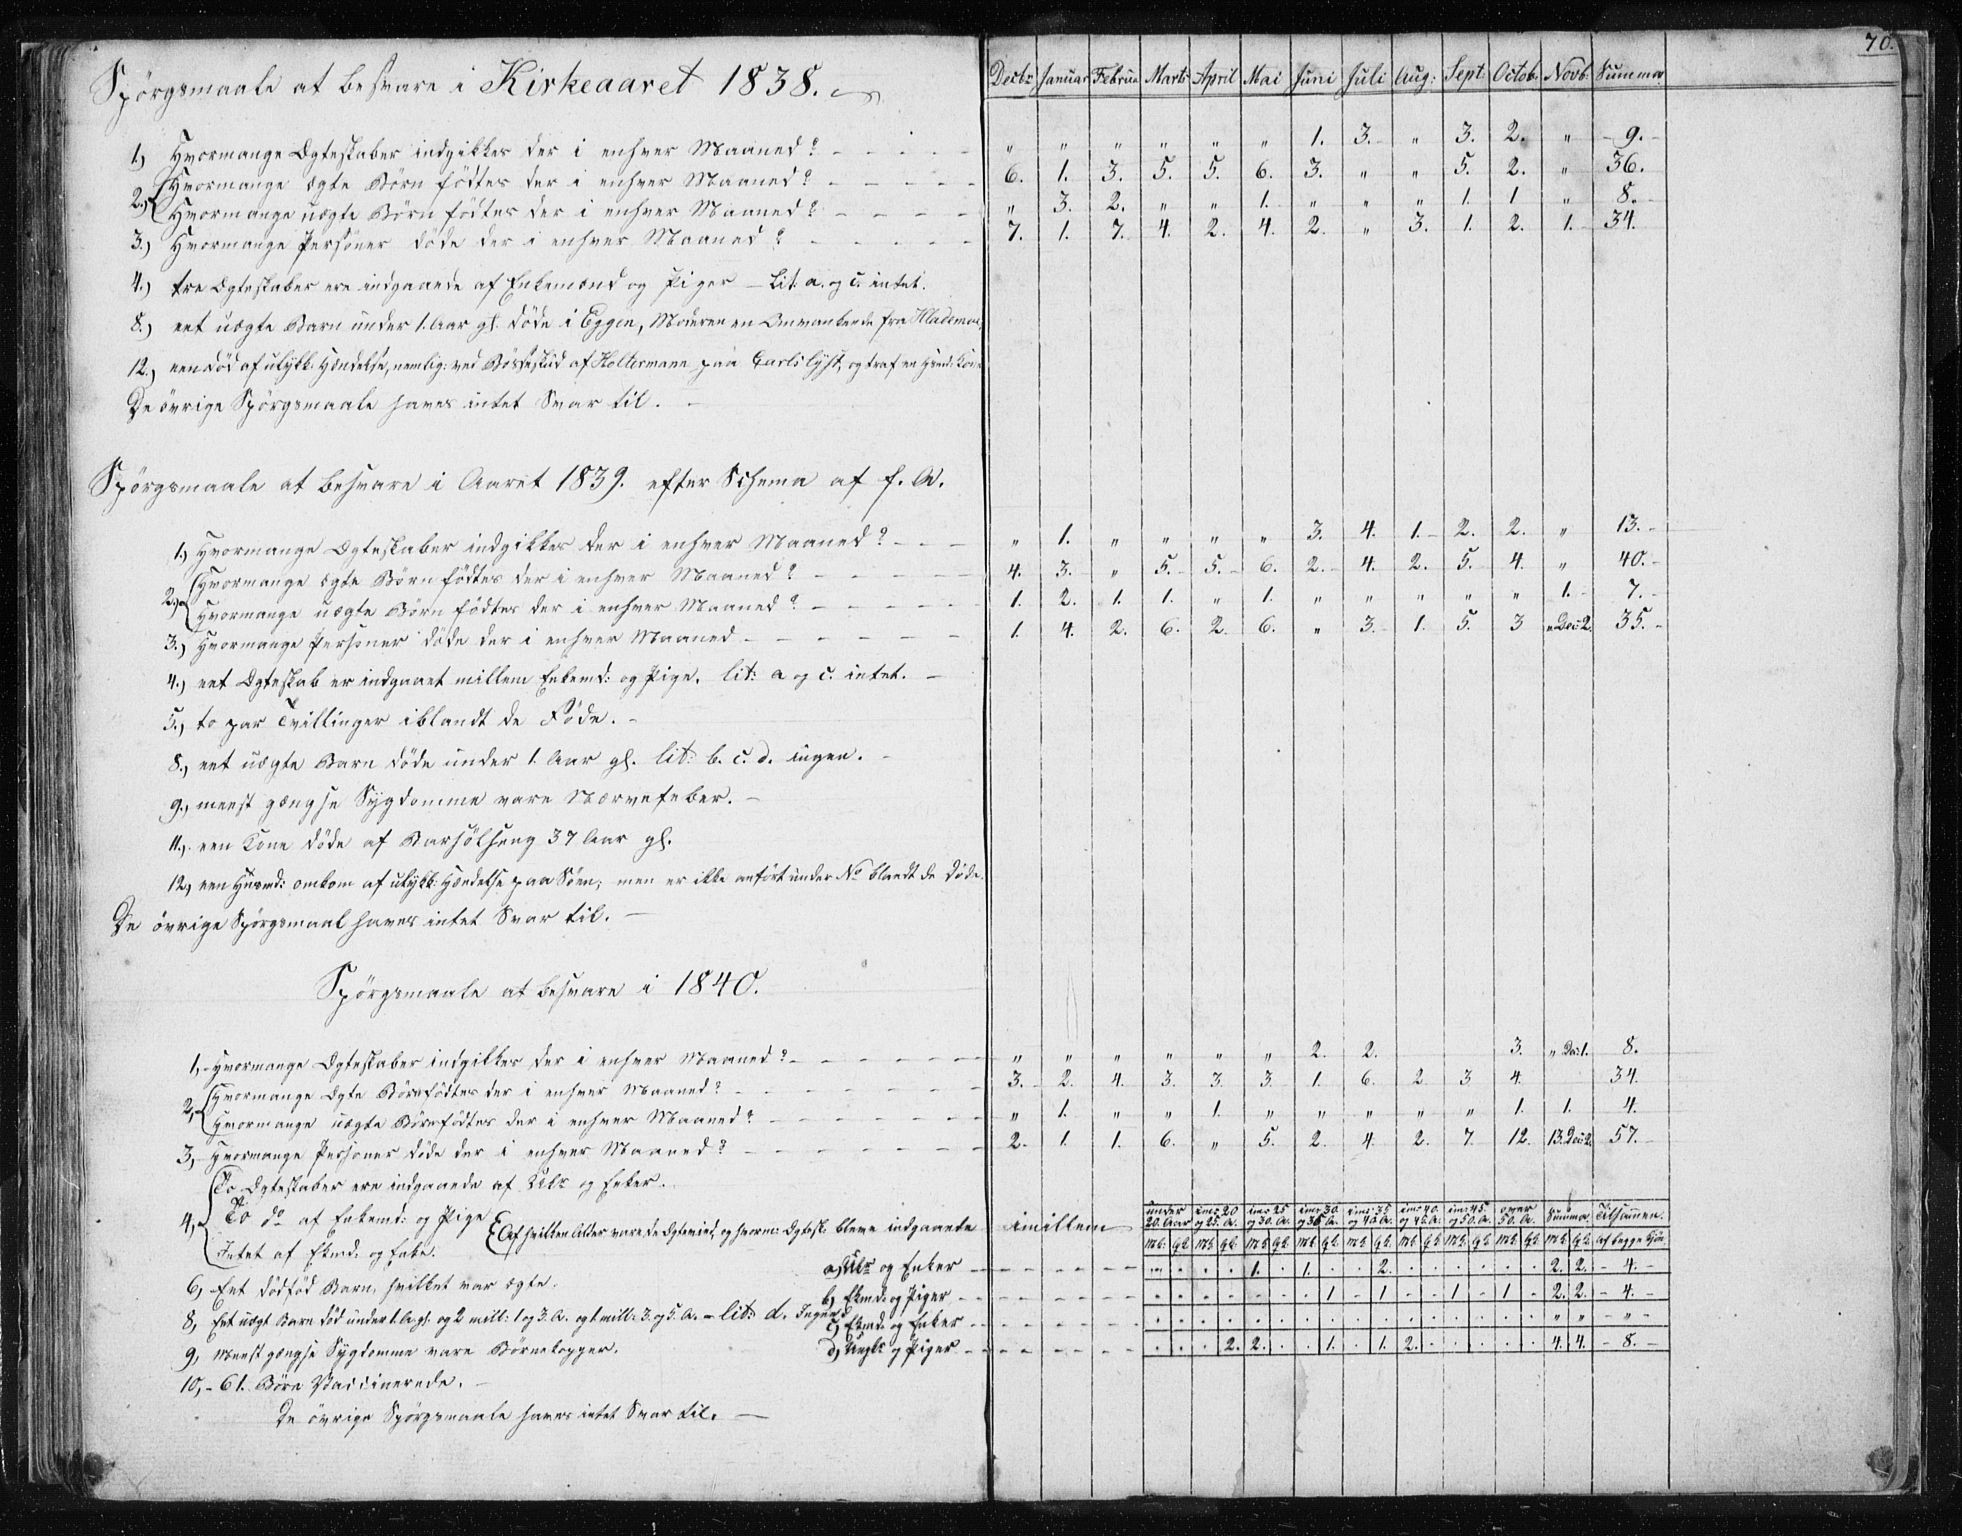 70.
Decbr Januar Februa Marts April Mai Juni Juli Aug: Sept: Octob: Novb: Summa
Spörgsmaale at besvare i Kirkeaaret 1838.
1,) Hvormange Ægteskaber indgikkes der i enhver Maaned? - - - - - " " " " " " 1. 3. " 3. 2. " - 9. -
2.) Hvormange ægte Börn födtes der i enhver Maaned? - - - - - 6. 1. 3. 5. 5. 6. 3. " " 5. 2. " 36.
Hvormange uægte Börn födtes der i enhver Maaned? - - - - " 3. 2. " " 1. " " " 1. 1 " 8. -
3.) Hvormange Personer döde der i enhver Maaned? - - - - - 7. 1. 7. 4. 2. 4. 2. " 3. 1. 2. 1. 34.
4.) tre Ægteskaber ere indgaaede af Enkemænd og Piger - Lit: a. og c. intet.
8.) eet uægte Barn under 1. Aar gl. döde i Eggen, Moderen en Omvankende fra
12.) een död af ulykk: Hændelse, nemlig: ved Bösseskud af Holtermann paa Carlslyst, og traf en Husmd: Kone
De övrige Spörgsmaale haves intet Svar til. -
Spörgsmaale at besvare i Aaret 1839. efter Schema af f. A.
1.) Hvormange Ægteskaber indgikkes der i enhver Maaned? - - - " 1. " " " " 3. 4. 1. - 2. 2. " 13. -
2.) Hvormange ægte Börn födtes der i enhver Maaned? - - - - - 4. 3. " 5. - 5. - 6. 2. - 4. 2. 5. 4. " 40. -
Hvormange uægte Börn födtes der i enhver Maaned? - - - - - 1. 2. 1. 1. " 1. " " " " " 1. - 7. -
3.) Hvormange Personer döde der i enhver Maaned - - - - - - 1. 4. 2. 6. 2. 6. " 3. 1. 5. 3 " Dec: 2. 35. -
4.) eet Ægteskab er indgaaet mellem Enkemd: og Pige. lit: a og c. intet. -
5.) to par Tvillinger iblandt de Föde. -
8.) eet uægte Barn döde under 1. Aar gl. lit: b. c. d. ingen. -
9.) meest gængse Sygdomme vare Nærvefeber. -
11.) een Kone döde af Barsölseng 37 Aar gl.
12.) een Husmd: omkom af ulykk: Hændelse paa Söen, men er ikke anfört under No blandt de Döde.
De övrige Spörgsmaal haves intet Svar til. -
Spörgsmaale at besvare i 1840.
1,- Hvormange Ægteskaber indgikkes der i enhver Maaned? - - - - - - " " " " " " 2. 2. 3. " Dec: 1. 8.
2,- Hvormange Ægte Börn födtes der i enhver Maaned? - - - - - - - 3. - 2. 4. 3. 3. 3. 1. 6. 2. 3 4. 34.
Hvormange uægte Börn födtes der i enhver Maaned? - - - - - - " 1. " " 1. " " " " " 1. 1. 4.
3,- Hvormange Personer döde der i enhver Maaned? - - - - - - - 2. 1. 1. 6. " 5. 2. 4. 2. 7. 12. 13. Dec: 2. 57. -
To Ægteskaber ere indgaaede af Ukr og Enker.
4,- To do af Enkemd: og Pige
Intet af Ekmd: og Enke.
Af hvilken Alder vare de Ægteviede, og hvorm: Ægtesk: bleve indgaaede imellem
under 20. Aar imo: 20 og 25. A. imo: 25 og 30. A. imo: 30. og 35 A. imo: 35 og 40. A. imo: 40. og 45. A. imo: 45. og 50. A. over 50. A. Summa. Tilsammen.
Mk: Qk. Mk: Qk. Mk: Qk. Mk: Qk. Mk: Qk. Mk: Qk. Mk: Qk. Mk: Qk. Mk: Qk. af begge Kjön.
a) Ukr og Enker - - - - - - - . . . . 1. . 1. . . 2. . . . . . . 2. 2. - 4. -
b) Ekmd: og Piger - - - - - - - . . . . . . . 1 . 1 . . 1 . 1 . 2. 2. - 4. -
c) Ekmd: og Enker - - - - - - - . . . . . . . . . . . . . . . . " " - " -
d) Ungkr og Piger - - - - - - - . . . 2. 2. . . 1. . 1. 2. . . . . . 4. 4. - 8. -
6, Eet dödföd Barn, hvilket var ægte.
8, Eet uægt Barn död under 1. A. gl. og 2 mell: 1 og 3. A. og 1 mell: 3. og 5. A. - lit: d. Ingen
9, Meest gængse Sygdomme vare Börnekopper.
10,- 61. Börn Vaccinerede. -
De övrige Spörgsmaale haves intet Svar til. -